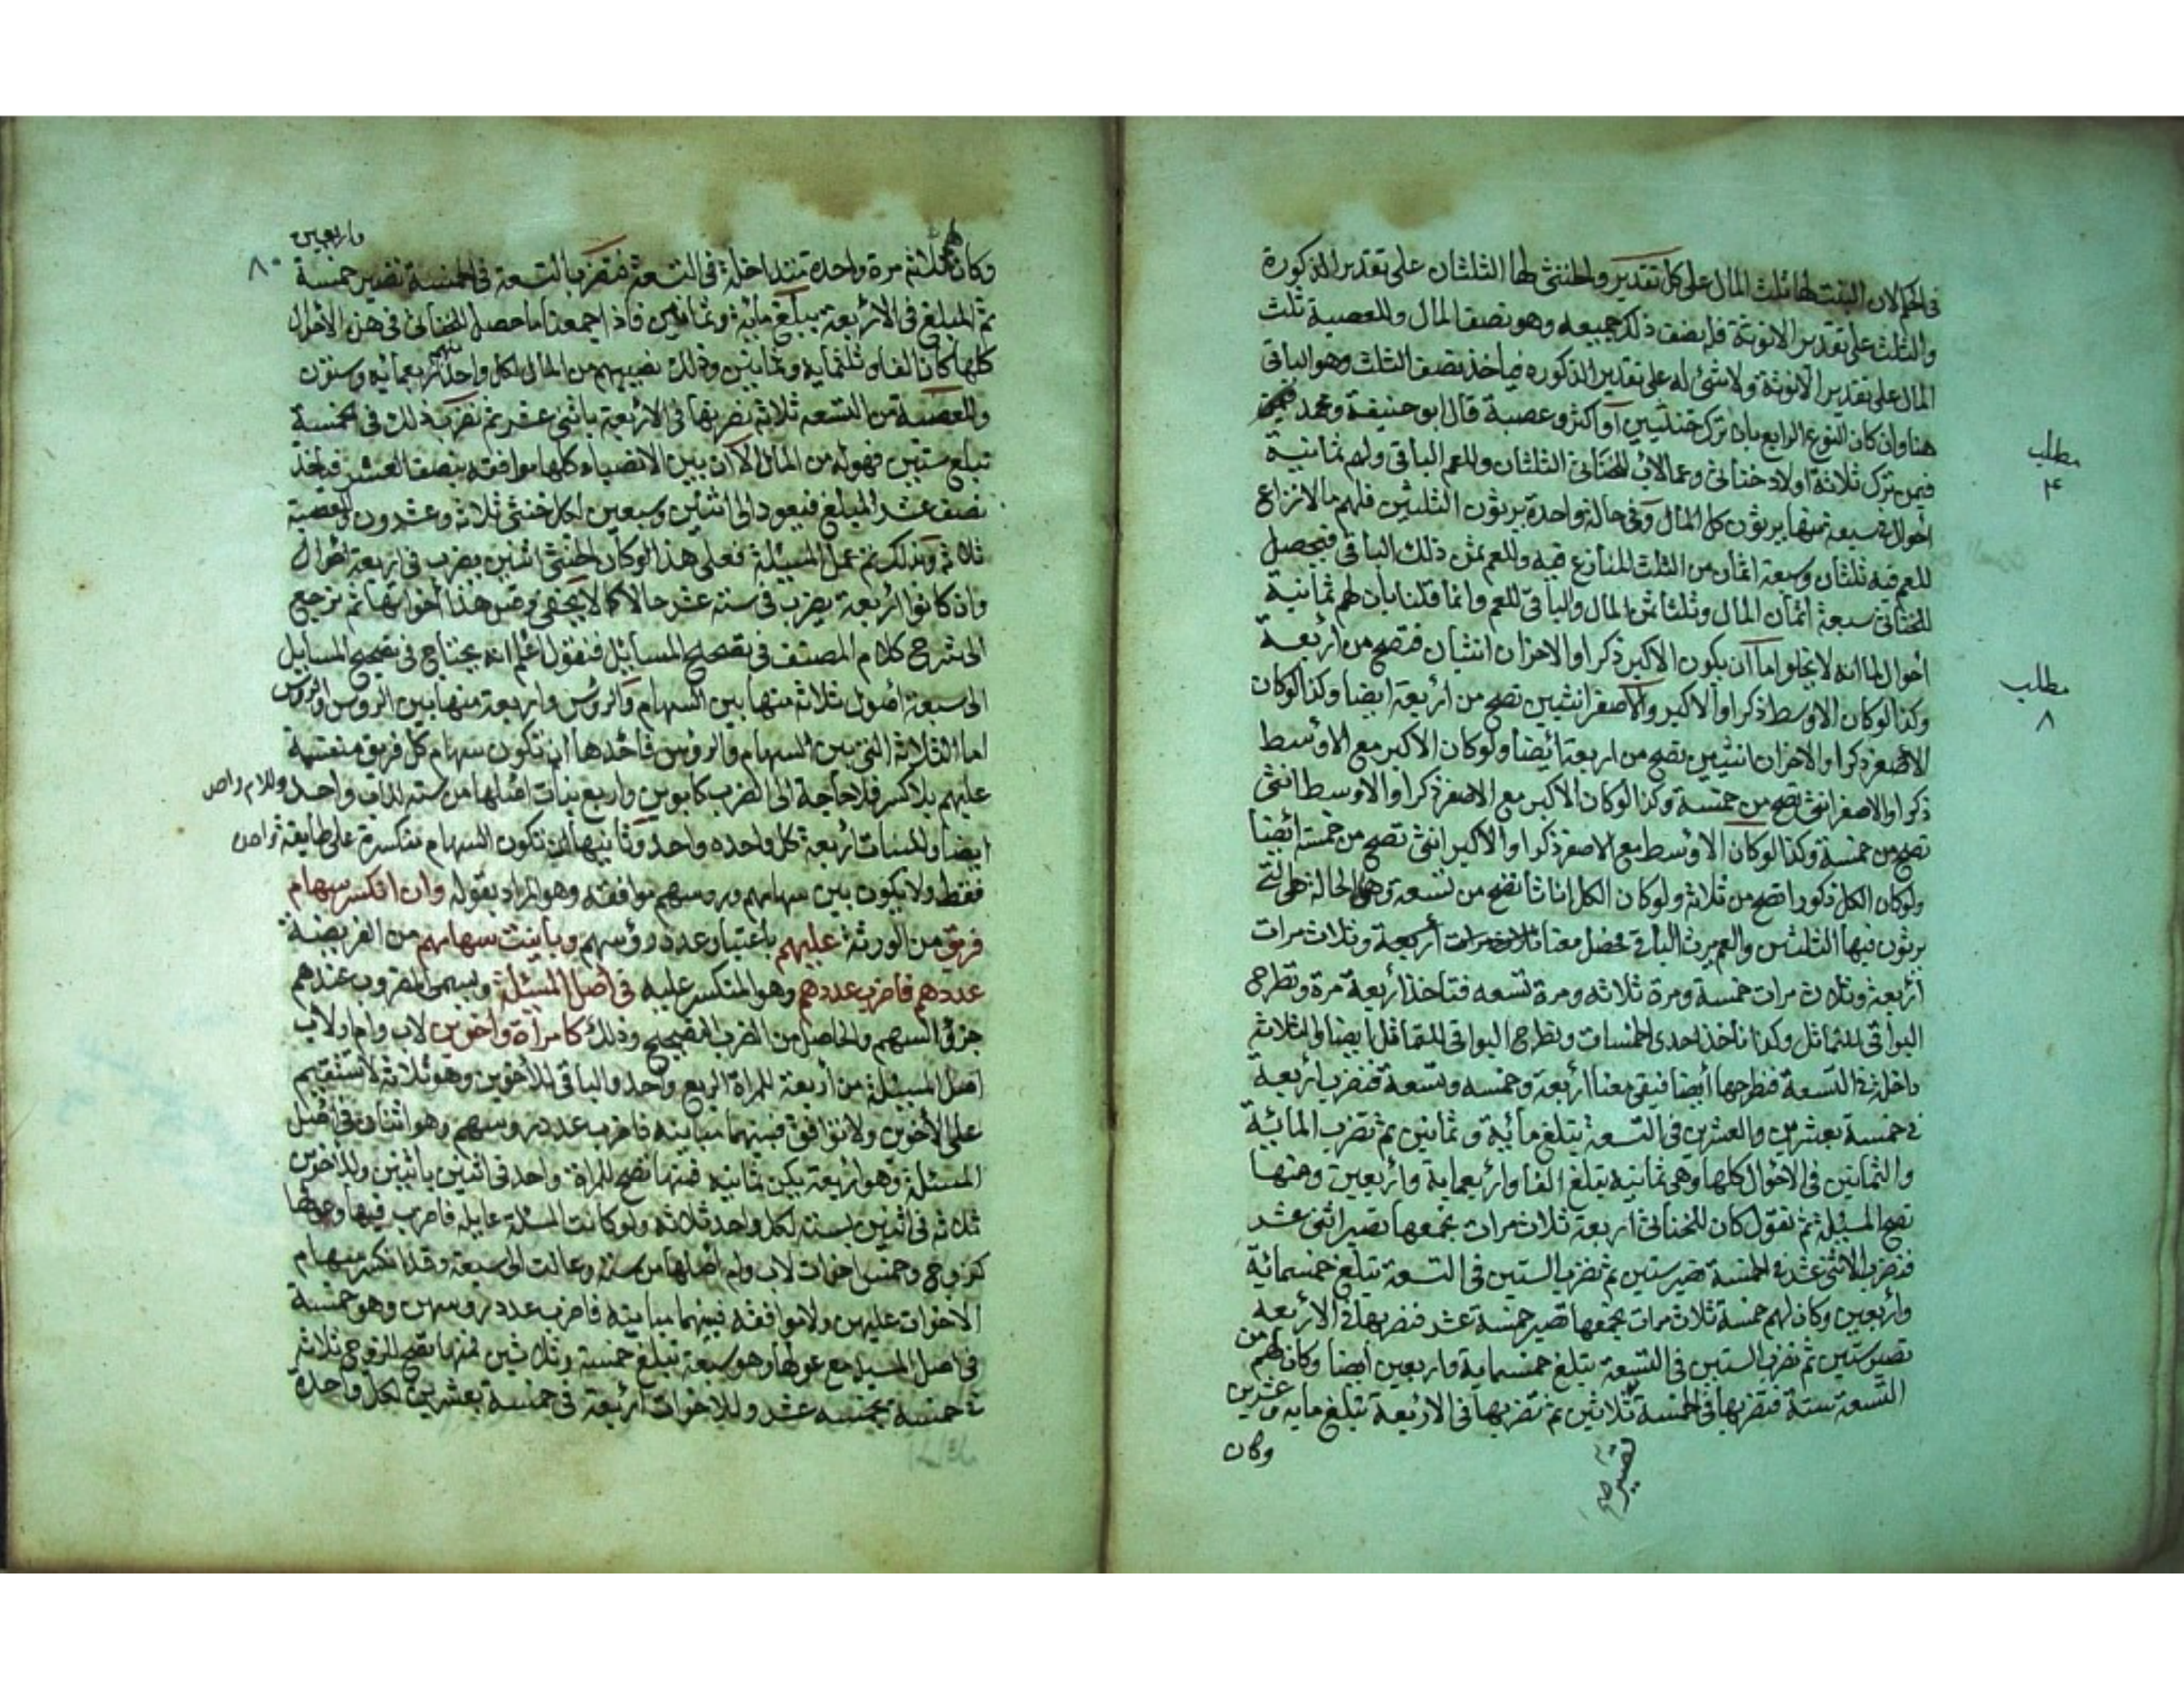 في الحالان البنت لها ثلث المال على كل تقدير والخنثى لها الثلثان على تقدير الذكورة
والثلث على تقدير الانوثة فله نصف ذلك جميعه وهو نصف المال وللعصبة ثلث
المال على تقدير الانوثة ولا شئ له على تقدير الذكوره فياخذ نصف الثلث وهو الباقي
هنا وان كان النوع الرابع بان ترك خنثيين او اكثر وعصبة قال ابو حنيفة ومحمد
فيمن ترك ثلاثة اولاد خناثى وعما لاب للخناثى الثلثان وللعم الباقي ولهم ثمانية
احوال في سبعة منها يرثون كل المال وفي حالة واحدة يرثون الثلثين فلهم ما لا نزاع
للعم فيه ثلثان وسبعة اثمان من الثلث المنازع فيه وللعم ثمن ذلك الباقي فيحصل
للخناثى سبعة اثمان المال وثلثا ثمن المال والباقي للعم وانما قلنا بان لهم ثمانية
احوال لما انه لا يخلوا اما ان يكون الاكبر ذكرا والاخران انثيان فتصح من اربعة
وكذا لو كان الاوسط ذكرا والاكبر والاصغر انثيين تصح من اربعة ايضا وكذا لو كان
الاصغر ذكرا والاخران انثيين تصح من اربعة ايضا ولو كان الاكبر مع الاوسط
ذكرا والاصغر انثى تصح من خمسة وكذا لو كان الاكبر مع الاصغر ذكرا والاوسط انثى
تصح من خمسة وكذا لو كان الاوسط مع الاصغر ذكرا والاكبر انثى تصح من خمسة ايضا
ولو كان الكل ذكورا تصح من ثلاثة ولو كان الكل اناثا تصح من تسعة وهي الحالة التي
يرثون فيها الثلثين والعم يرث الباقي فحصل معنا اربعة وثلاث مرات
اربعة وثلاث مرات خمسة ومرة ثلاثه ومرة تسعه فتاخذ اربعة مرة وتطرح
البواقي للتماثل وكذا تأخذ احدى الخمسات وتطرح البواقي للتماثل ايضا والثلاثة
داخلة في التسعة فتطرحها ايضا فيبقى معنا اربعة وخمسه وتسعة فتضرب اربعة
في خمسة بعشرين والعشرين في التسعة يبلغ مأية وثمانين ثم تضرب المائية
والثمانين في الاحوال كلها وهي ثمانية يبلغ الفا واربعماية واربعين ومنها
تصح المسئلة ثم نقول كان للخناثى اربعة ثلاث مرات نجمعها تصير اثنى عشر
فتضرب الاثنى عشر في الخمسة تصير ستين ثم تضرب الستين في التسعة تبلغ خمسمائية
واربعين وكان لهم خمسة ثلاث مرات نجمعها تصير خمسة عشر فنضربها في الاربعه
تصير ستين ثم تضرب الستين في التسعة يبلغ خمسماية واربعين ايضا وكان لهم من
التسعة ستة فتضربها في الخمسة ثلاثين ثم تضربها في الاربعة تبلغ مايه وعشرين
وكان
تصير
مطلب
۴
مطلب
٨
واربعين
٨٠
وكان لهم ثلاثة مرة واحدة تتداخلة في التسعة فتضرب التسعة في الخمسة تصير خمسة
ثم المبلغ في الاربعة يبلغ مأية وثمانين فاذا جمعنا ما حصل للخناثى في هذه الاحوال
كلها كان الفا وثلثماية وثمانين وذلك نصيبهم من المال لكل واحد منهم اربعمائه وستون
وللعصبة من التسعه ثلاثه نضربها في الاربعة باثنى عشر ثم نضرب ذلك في الخمسة
تبلغ ستين فهو له من المال الا ان بين الانصباء كلها موافقه بنصف العشر فتاخذ
نصف عشر المبلغ فيعود الى اثنين وسبعين لكل خنثى ثلاثة وعشرون وللعصبة
ثلاثة وكذلك نعمل المسئلة فعلى هذا لو كان الخنثى اثنين يضرب في اربعة احوال
وان كانوا اربعة يضرب في ستة عشر حالا كما لا يخفى وقس هذا اخواتها ثم نرجع
الى شرح كلام المصنف في تصحيح المسائل فنقول اعلم انه يحتاج في تصحيح المسايل
الى سبعة اصول ثلاثة منها بين السهام والرؤس واربعة منها بين الروس والرؤس
اما الثلاثة التي بين السهام والرؤس فاحدها ان تكون سهام كل فريق منقسمة
عليهم بلا كسر فلا حاجة الى الضرب كابوين واربع بنات اصلها من سته للاب واحد وللام واحد
ايضا وللبنات اربعة كل واحده واحد وثانيها ان تكون السهام منكسرة على طايفة واحدة
فقط ولا يكون بين سهامهم وروسهم موافقه وهو المراد بقوله وان انكسر سهام
فريق من الورثة عليهم باعتبار عدد رؤسهم وباينت سهامهم من الفريضة
عددهم فاضرب عددهم وهو المنكسر عليه في اصل المسئلة ويسمى المضروب عندهم
جزؤ السهم والحاصل من الضرب التصحيح وذلك كامراة واخوين لاب وام او لاب
اصل المسئلة من اربعة للمراة الربع واحد والباقي للاخوين وهو ثلاثة لا تستقيم
على الاخوين ولا توافق فبينهما مباينه فاضرب عدد روسهم وهو اثنان في اصل
المسئلة وهو اربعة يكن ثمانيه فمنها تصح للمراة واحد في اثنين باثنين وللاخوين
ثلاثة في اثنين بستة لكل واحد ثلاثه ولو كانت المسئلة عايلة فاضرب فيها وعولها
كزوج وخمس اخوات لاب وام اصلها من ستة وعالت الى سبعة وقد انكسر سهام
الاخوات عليهن ولا موافقه فبينهما مباينه فاضرب عدد روسهن وهو خمسة
في اصل المسئلة مع عولها وهو سبعة تبلغ خمسة وثلاثين فمنها تصح للزوج ثلاثة
في خمسة بخمسه عشر وللاخوات اربعة في خمسة بعشرين لكل واحدة